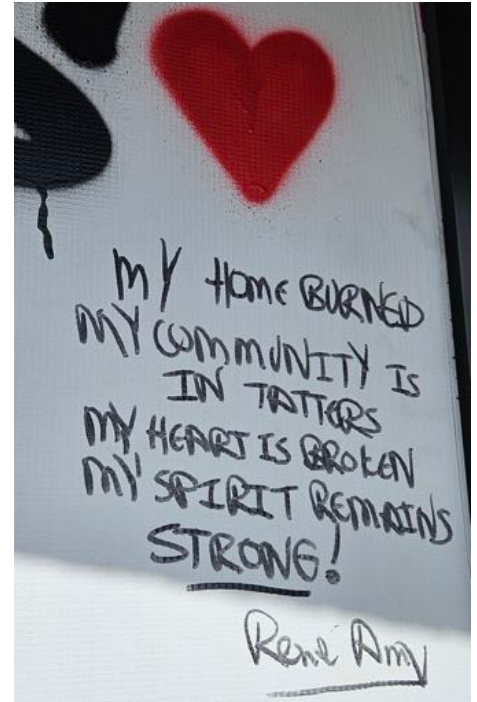 MY HOME BURNED
MY COMMUNITY IS
IN TATTERS
MY HEART IS BROKEN
MY SPIRIT REMAINS
STRONG!
René Amy